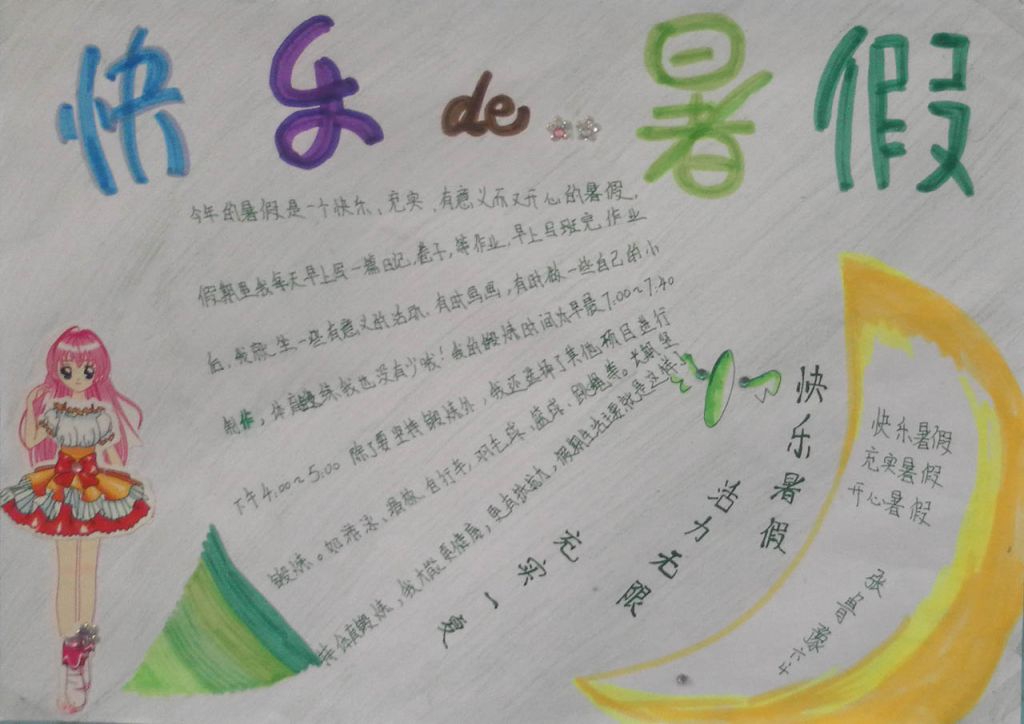 快乐de暑假
今年的暑假是一个快乐、充实、有意义而又开心的暑假，
假期里我每天早上写一篇日记，卷子，等作业，早上写完作业
后，我就 些有意义的活动，有时写画，有时做一些自己的小
制作，体育锻炼我也没有少哦！我的锻炼时间为早晨7:00~7:40
下午4:00~5:00 除了要坚持锻炼外，我还选择了其他项目进行
锻炼。如游泳、滑板、自行车，羽毛球，篮球，跳绳等。长期坚
持体育锻炼，我 更健康，更有 ，假期生活 就是这样
快乐暑假
活力无限
充实一夏
快乐暑假
充实暑假
开心暑假
张 豫 六·4